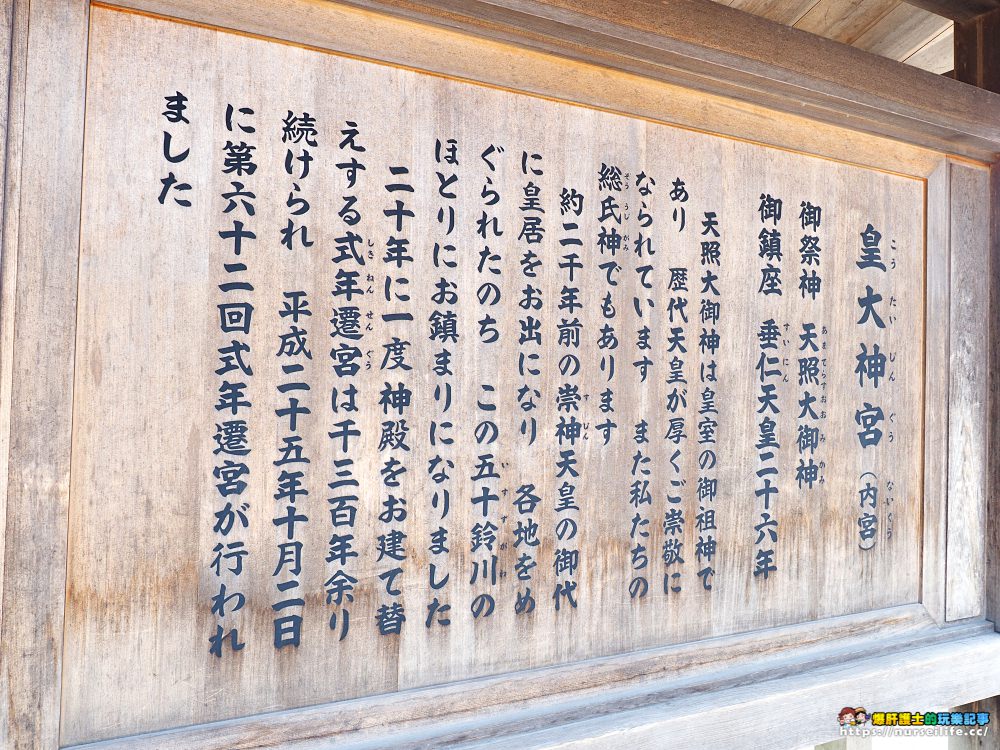 皇大神宮（内宮）
こうたいじんぐう
ないくう
御祭神　天照大御神
あまてらすおおみかみ
御鎮座　垂仁天皇二十六年
すいにん
天照大御神は皇室の御祖神で
あり　歴代天皇が厚くご崇敬に
なられています　また私たちの
総氏神でもあります
そううじがみ
約二千年前の崇神天皇の御代
すじん
に皇居をお出になり　各地をめ
ぐられたのち　この五十鈴川の
いすずがわ
ほとりにお鎮まりになりました
二十年に一度神殿をお建て替
えする式年遷宮は千三百年余り
しきねんせんぐう
続けられ　平成二十五年十月二日
に第六十二回式年遷宮が行われ
ました
爆肝護士的玩樂記事
https://nurseilife.cc/